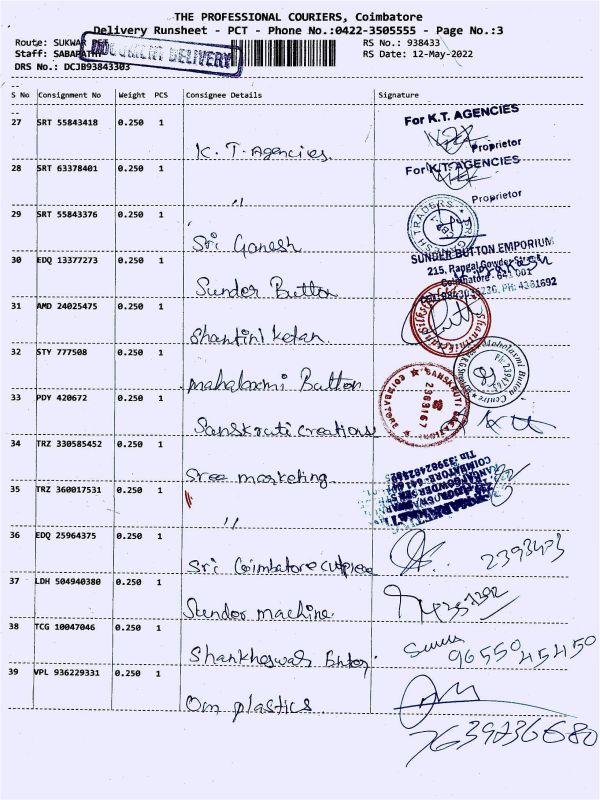 THE PROFESSIONAL COURIERS, Coimbatore
Delivery Runsheet - PCT - Phone No.:0422-3505555 - Page No.:3
Route: SUKWAR PET RS No.: 938433
Staff: SABAPATHY RS Date: 12-May-2022
DOCUMENT DELIVERY
DRS No.: DCJB93843303
S No Consignment No Weight PCS Consignee Details Signature
27 SRT 55843418 0.250 1
K. T. Agencies.
For K.T. AGENCIES
Proprietor
28 SRT 63378401 0.250 1
"
For K.T. AGENCIES
Proprietor
29 SRT 55843376 0.250 1
Sri Ganesh
GANESH TRADERS
30 EDQ 13377273 0.250 1
Sunder Button
SUNDER BUTTON EMPORIUM
215, Rangai Gowder Street
Coimbatore - 641 001
31 AMD 24025475 0.250 1
Shantini ketan
32 STY 777508 0.250 1
Mahalaxmi Button
Mahalaxmi Button Centre
33 PDY 420672 0.250 1
Sanskruti creations
SANSKRUTI CREATIONS
COIMBATORE
2383167
34 TRZ 330585452 0.250 1
Sree marketing.
35 TRZ 360017531 0.250 1
"
36 EDQ 25964375 0.250 1
Sri Coimbatore cutpiece
2393403
37 LDH 504940380 0.250 1
Sunder machine.
38 TCG 10047046 0.250 1
Shankheswar
9655045450
39 VPL 936229331 0.250 1
Om plastics.
7639236680